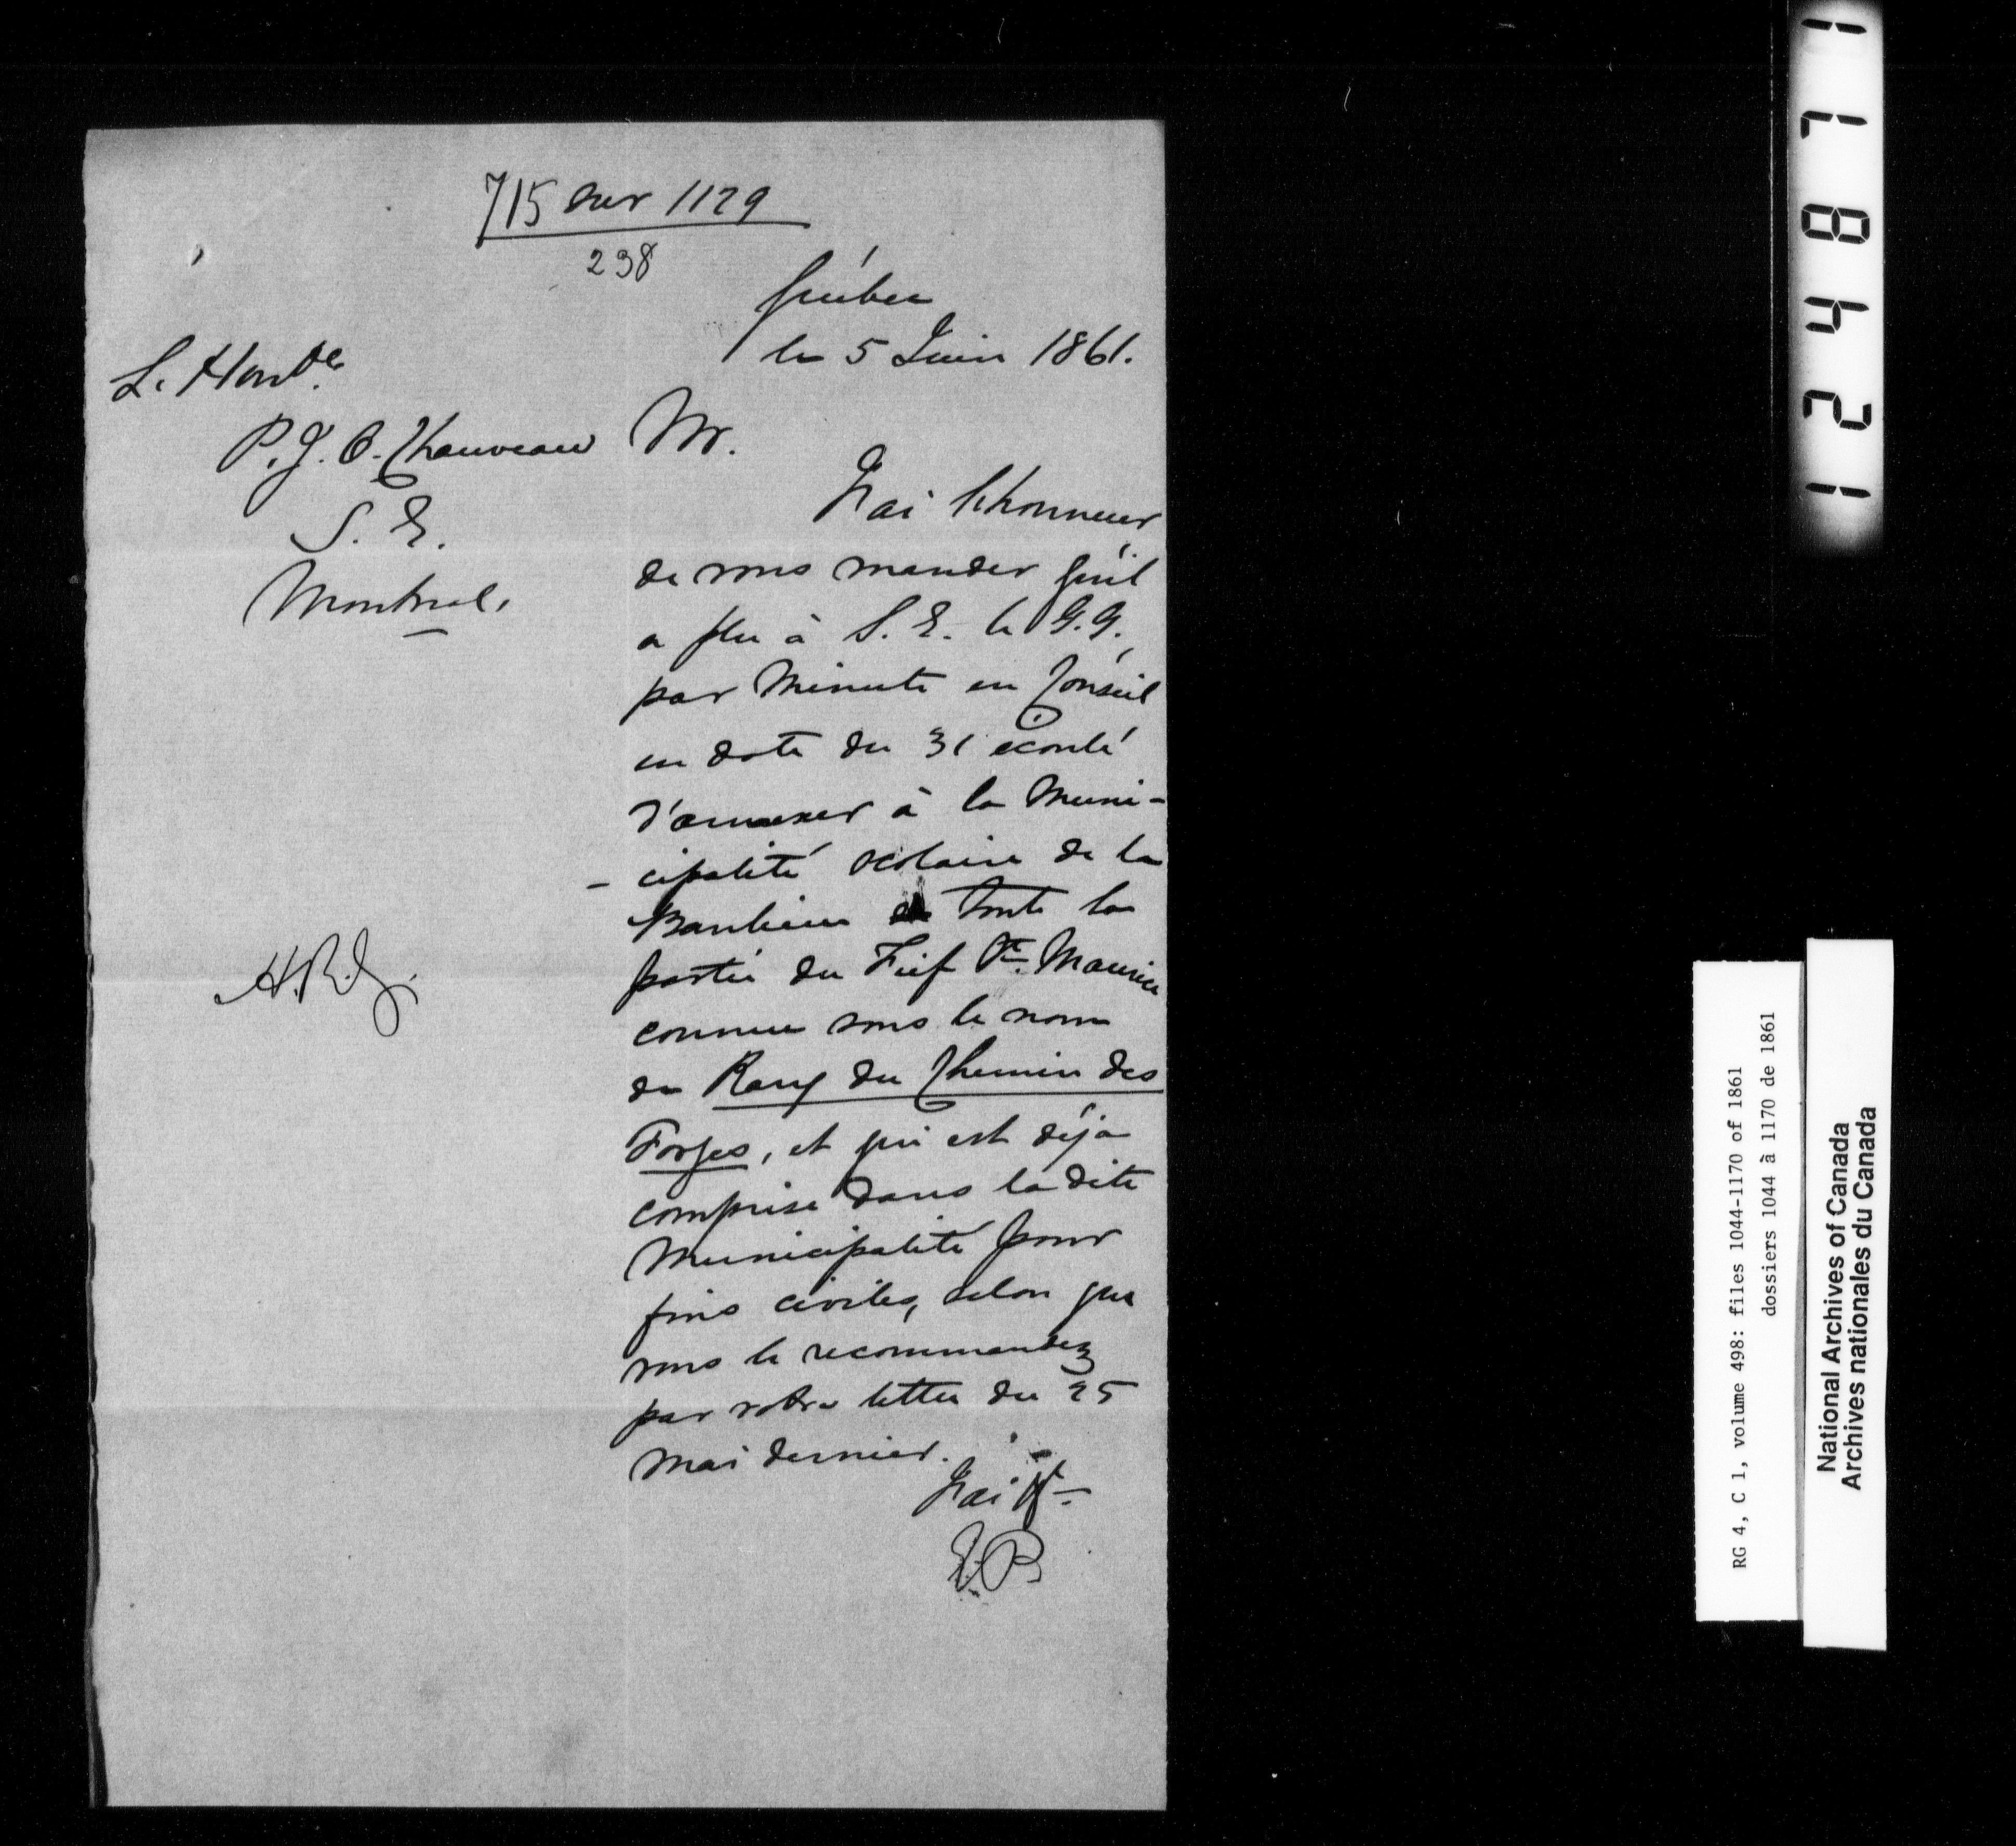 715 sur 1129
238
Québec
le 5 Juin 1861.
L. Honble
P. J. O. Chauveau
S. E.
Montreal.
Mr.
J'ai l'honneur
de vous mander qu'il
a plu à S. E. le G. G.,
par Minute en Conseil
en date du 31 écoulé
d'annexer à la Muni-
- cipalité scolaire de la
Banlieue toute la
partie du Fief St. Maurice
connue sous le nom
du Rang du Chemin des
Forges, et qui est déjà
comprise dans la dite
Municipalité pour
fins civiles, selon que
vous le recommandez
par votre lettre du 25
mai dernier.
J'ai &
E. P.
1 7 8 4 2 1
RG 4, C 1, volume 498: files 1044-1170 of 1861
dossiers 1044 à 1170 de 1861
National Archives of Canada
Archives nationales du Canada